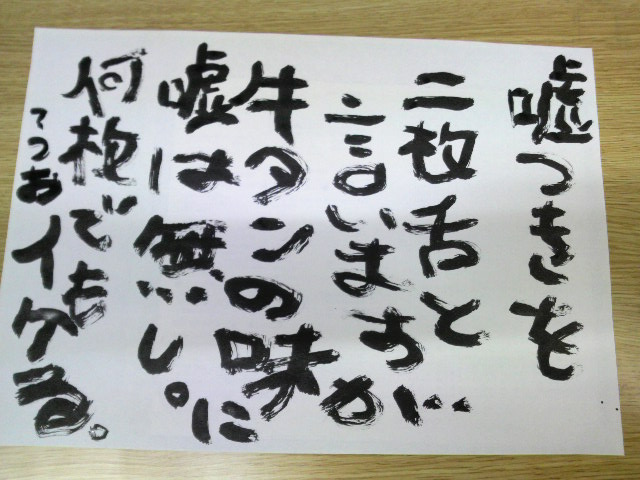 嘘つきを
二枚舌と
言いますが
牛タンの味に
嘘は無い。
何枚でも
イケる。
てつお